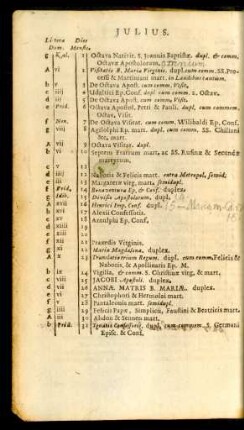 JULIUS.
Litera Dies
Dom. Mensis.
g Kal. 1 Octava Nativit. S. Joannis Baptistæ. dupl. & comm.
Octavæ Apostolorum.
A vi 2 Visitatio B. Mariæ Virginis. dupl. cum comm. SS. Processi & Martiniani mart. in Laudibus tantum.
b v 3 De Octava Apost. cum comm. Visit.
c iiij 4 Udalrici Ep. Conf. dupl. cum comm. 2. Octav.
d iij 5 De Octava Apost. cum comm. Visit.
e Prid. 6 Octava Apostol. Petri & Pauli. dupl. cum commem.
Octav. Visit.
f Non. 7 De Octava Visitat. cum comm. Willibaldi Ep. Conf.
g viij 8 Agilolphi Ep. mart. dupl. cum comm. SS. Chiliani
&c. mart.
A vij 9 Octava Visitat. dupl.
b vi 10 Septem Fratrum mart. ac SS. Rufinæ & Secundæ
martyrum.
c v 11
d iiij 12 Naboris & Felicis mart. extra Metropol. semid.
e iij 13 Margaretæ virg. mart. semidupl.
f Prid. 14 Bonaventuræ Ep. & Conf. duplex.
g Idib. 15 Divisio Apostolorum, dupl.
A xvii 16 Henrici Imp. Conf. dupl.
b xvi 17 Alexii Confessoris.
c xv 18 Arnulphi Ep. Conf.
d xiv 19
e xiij 20
f xii 21 Praxedis Virginis.
g xi 22 Maria Magdalena. duplex.
A x 23 Translatio trium Regum. dupl. cum comm. Felicis &
Naboris, & Apollinaris Ep. M.
b ix 24 Vigilia, & comm. S. Christinæ virg. & mart.
c viij 25 JACOBI Apostoli. duplex.
d vij 26 ANNÆ MATRIS B. MARIÆ. duplex.
e vi 27 Christophori & Hermolai mart.
f v 28 Pantaleonis mart. semidupl.
g iiij 29 Felicis Papæ, Simplicii, Faustini & Beatricis mart.
A iij 30 Abdon & Sennen mart.
b Prid. 31 Ignatii Confessoris. dupl. cum comm. S. Germani
Episc. & Conf.